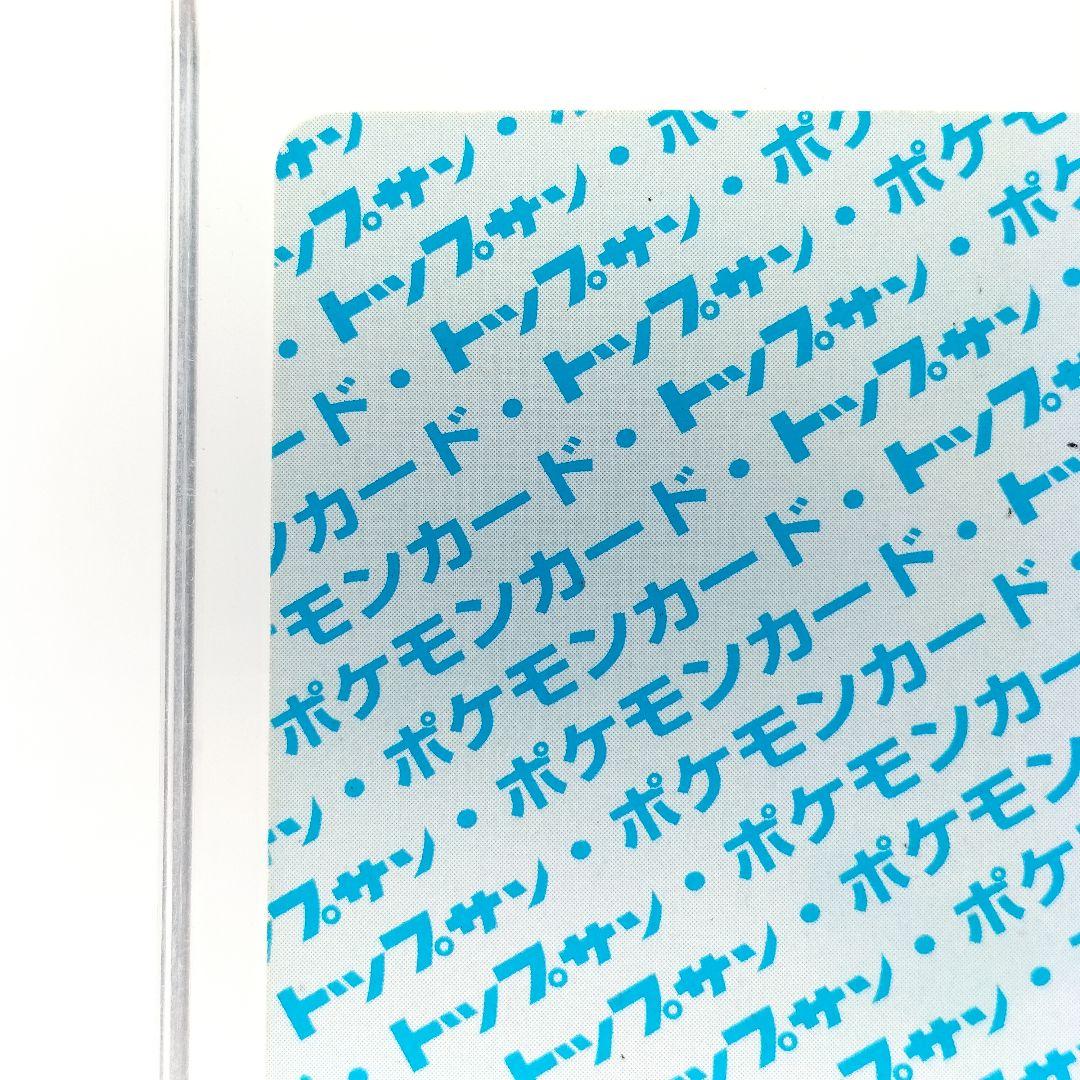 サン
ップサン・
・トップサン・ポ
ード・トップサン・ポケ
ンカード・トップサン・ポケモ
モンカード・トップサン・ポケ
ポケモンカード・トップサン・
ン・ポケモンカード・トップサ
プサン・ポケモンカード・トッ
トップサン・ポケモンカード・
トップサン・ポケモンカー
トップサン・ポケモン
ップサン・ポケ
プサン・